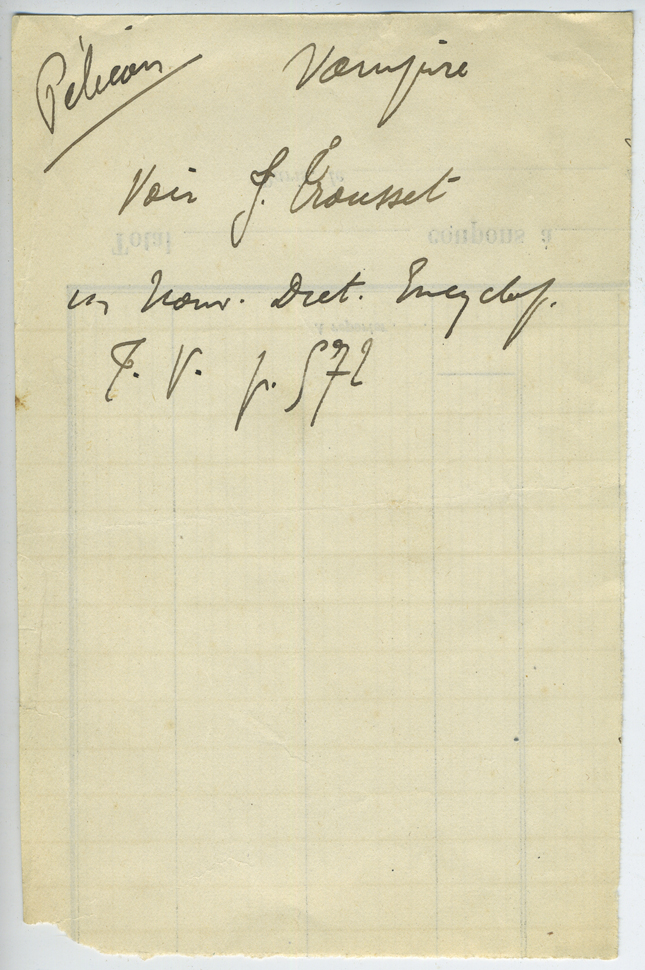 Pélican Vampire
Voir J. Trousset
in Nouv. Dict. Encyclop.
T. V. p. 572
Total coupons à